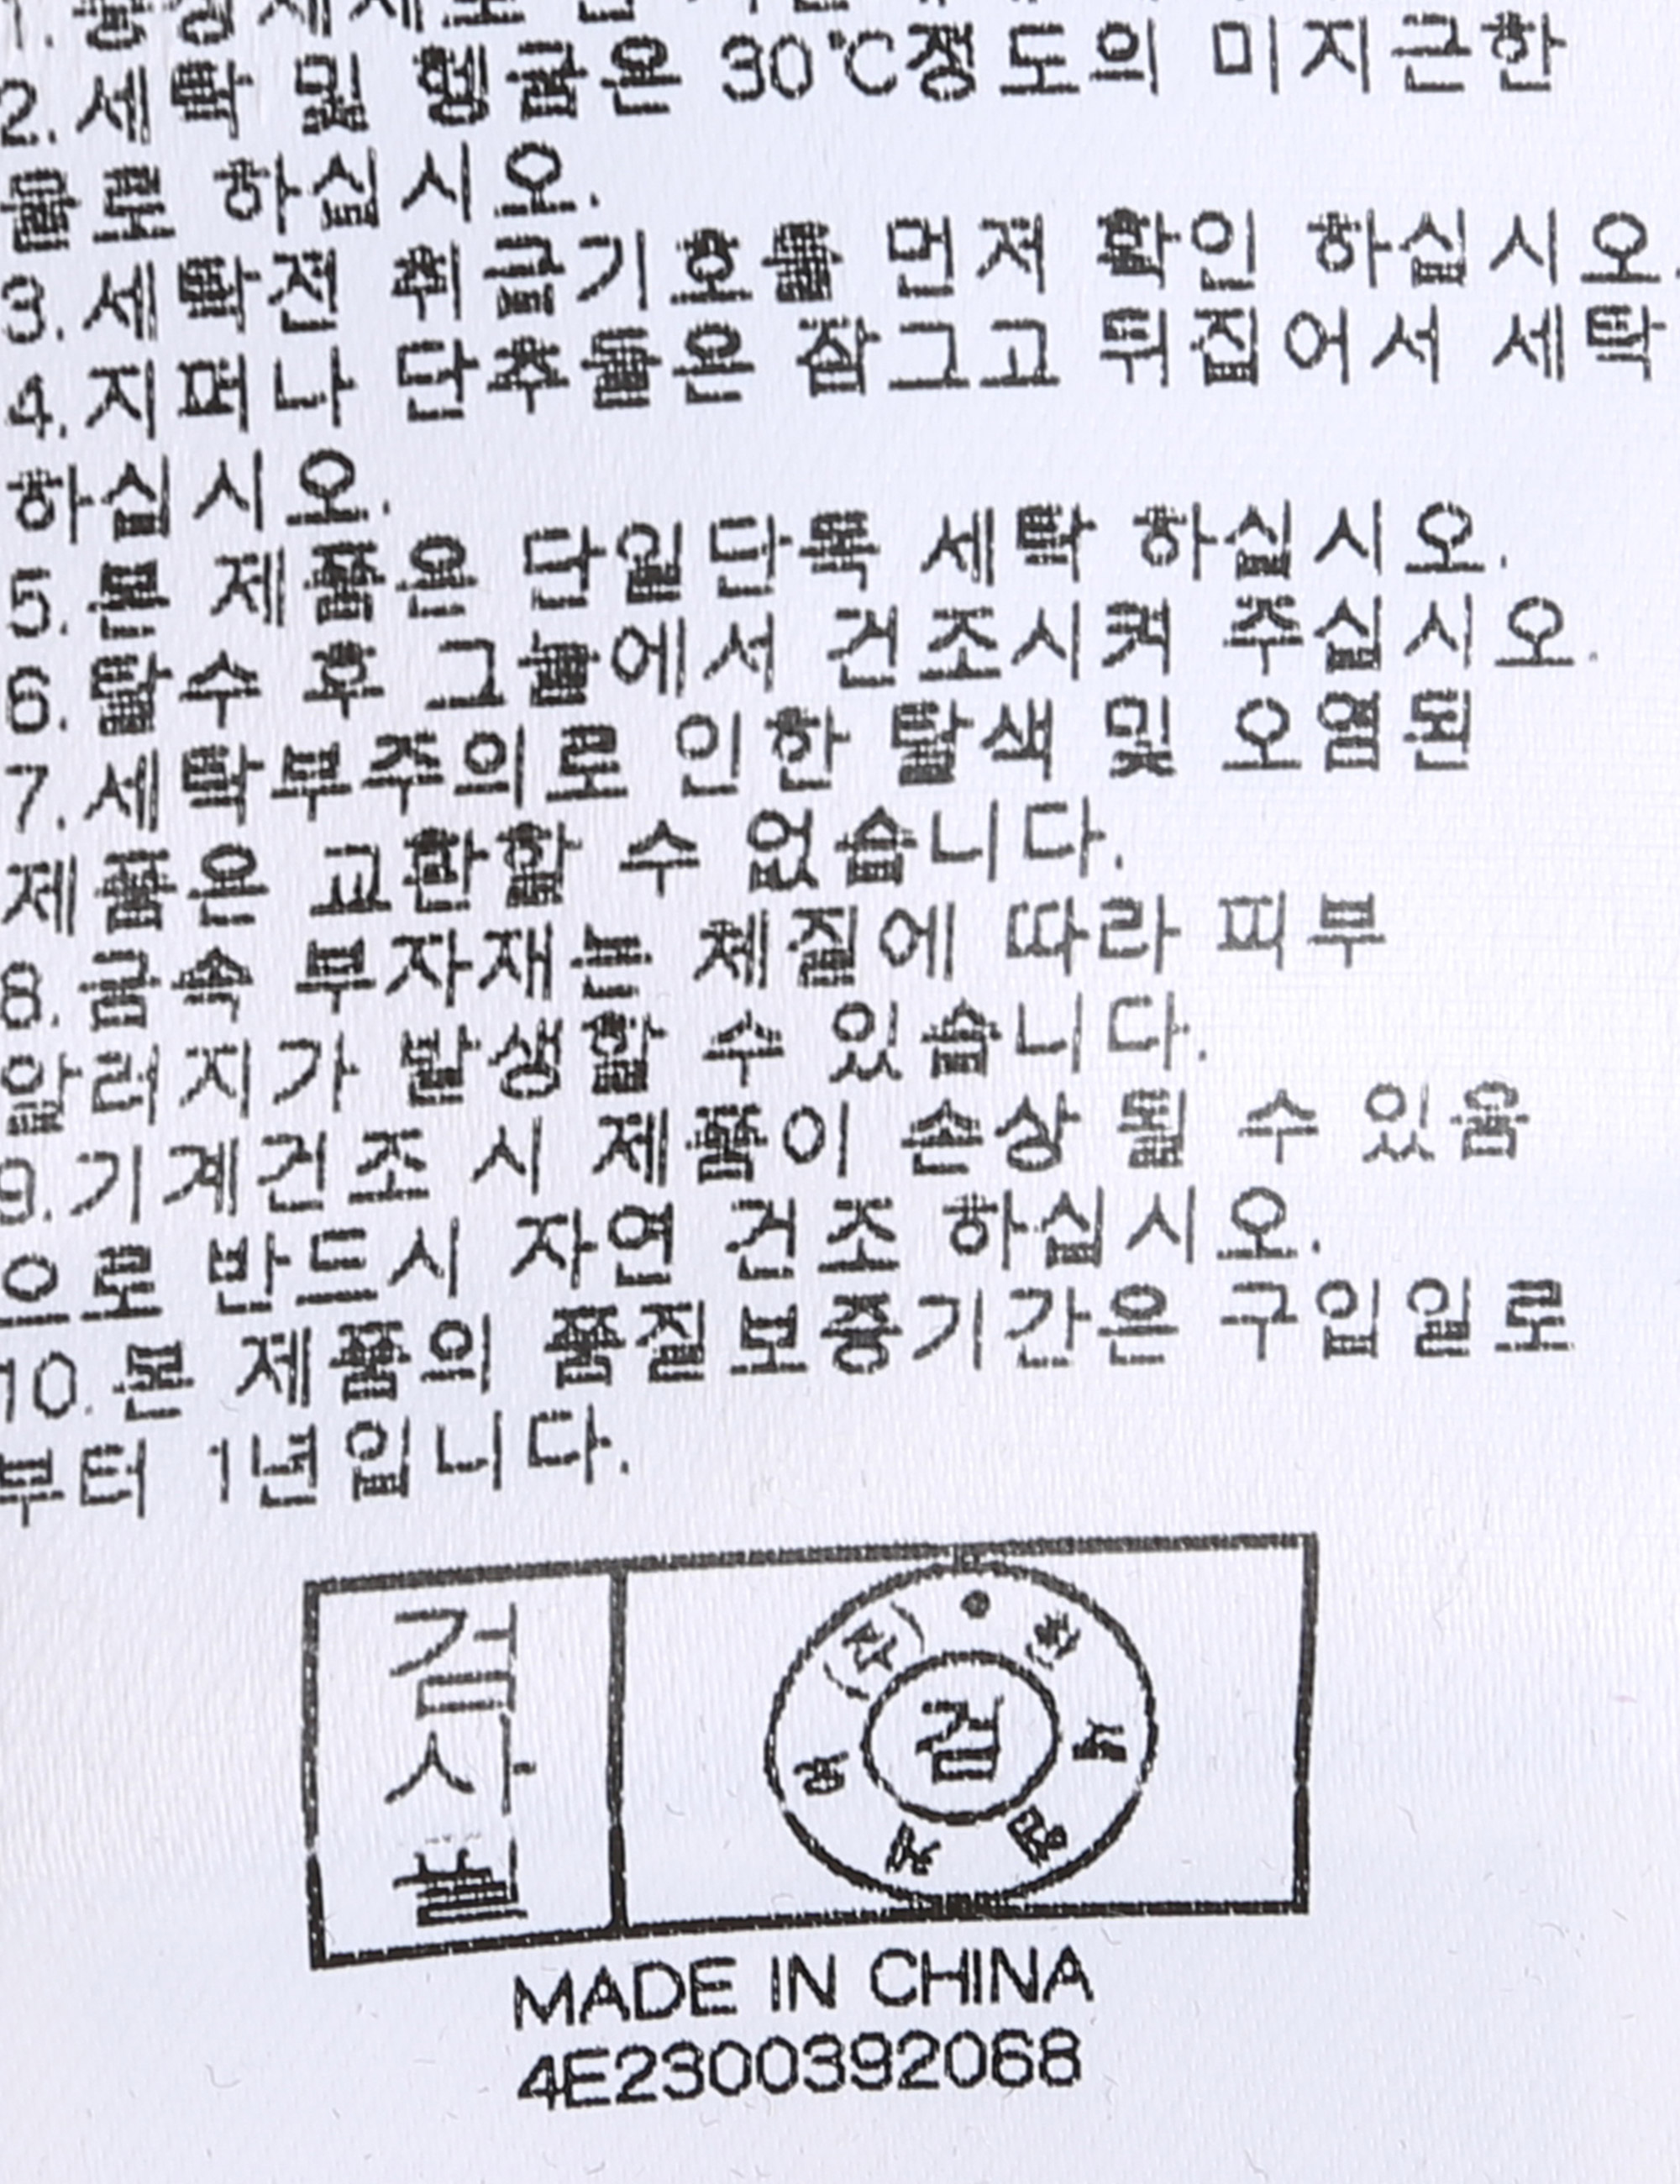 2. 세탁 및 헹굼은 30℃정도의 미지근한
물로 하십시오.
3. 세탁전 취급기호를 먼저 확인 하십시오.
4. 지퍼나 단추들은 잠그고 뒤집어서 세탁
하십시오.
5. 본 제품은 단일단독 세탁 하십시오.
6. 탈수 후 그늘에서 건조시켜 주십시오.
7. 세탁부주의로 인한 탈색 및 오염된
제품은 교환할 수 없습니다.
8. 금속 부자재는 체질에 따라 피부
알러지가 발생할 수 있습니다.
9. 기계건조 시 제품이 손상 될 수 있음
으로 반드시 자연 건조 하십시오.
10. 본 제품의 품질보증기간은 구입일로
부터 1년입니다.
검사필
검
MADE IN CHINA
4E2300392068